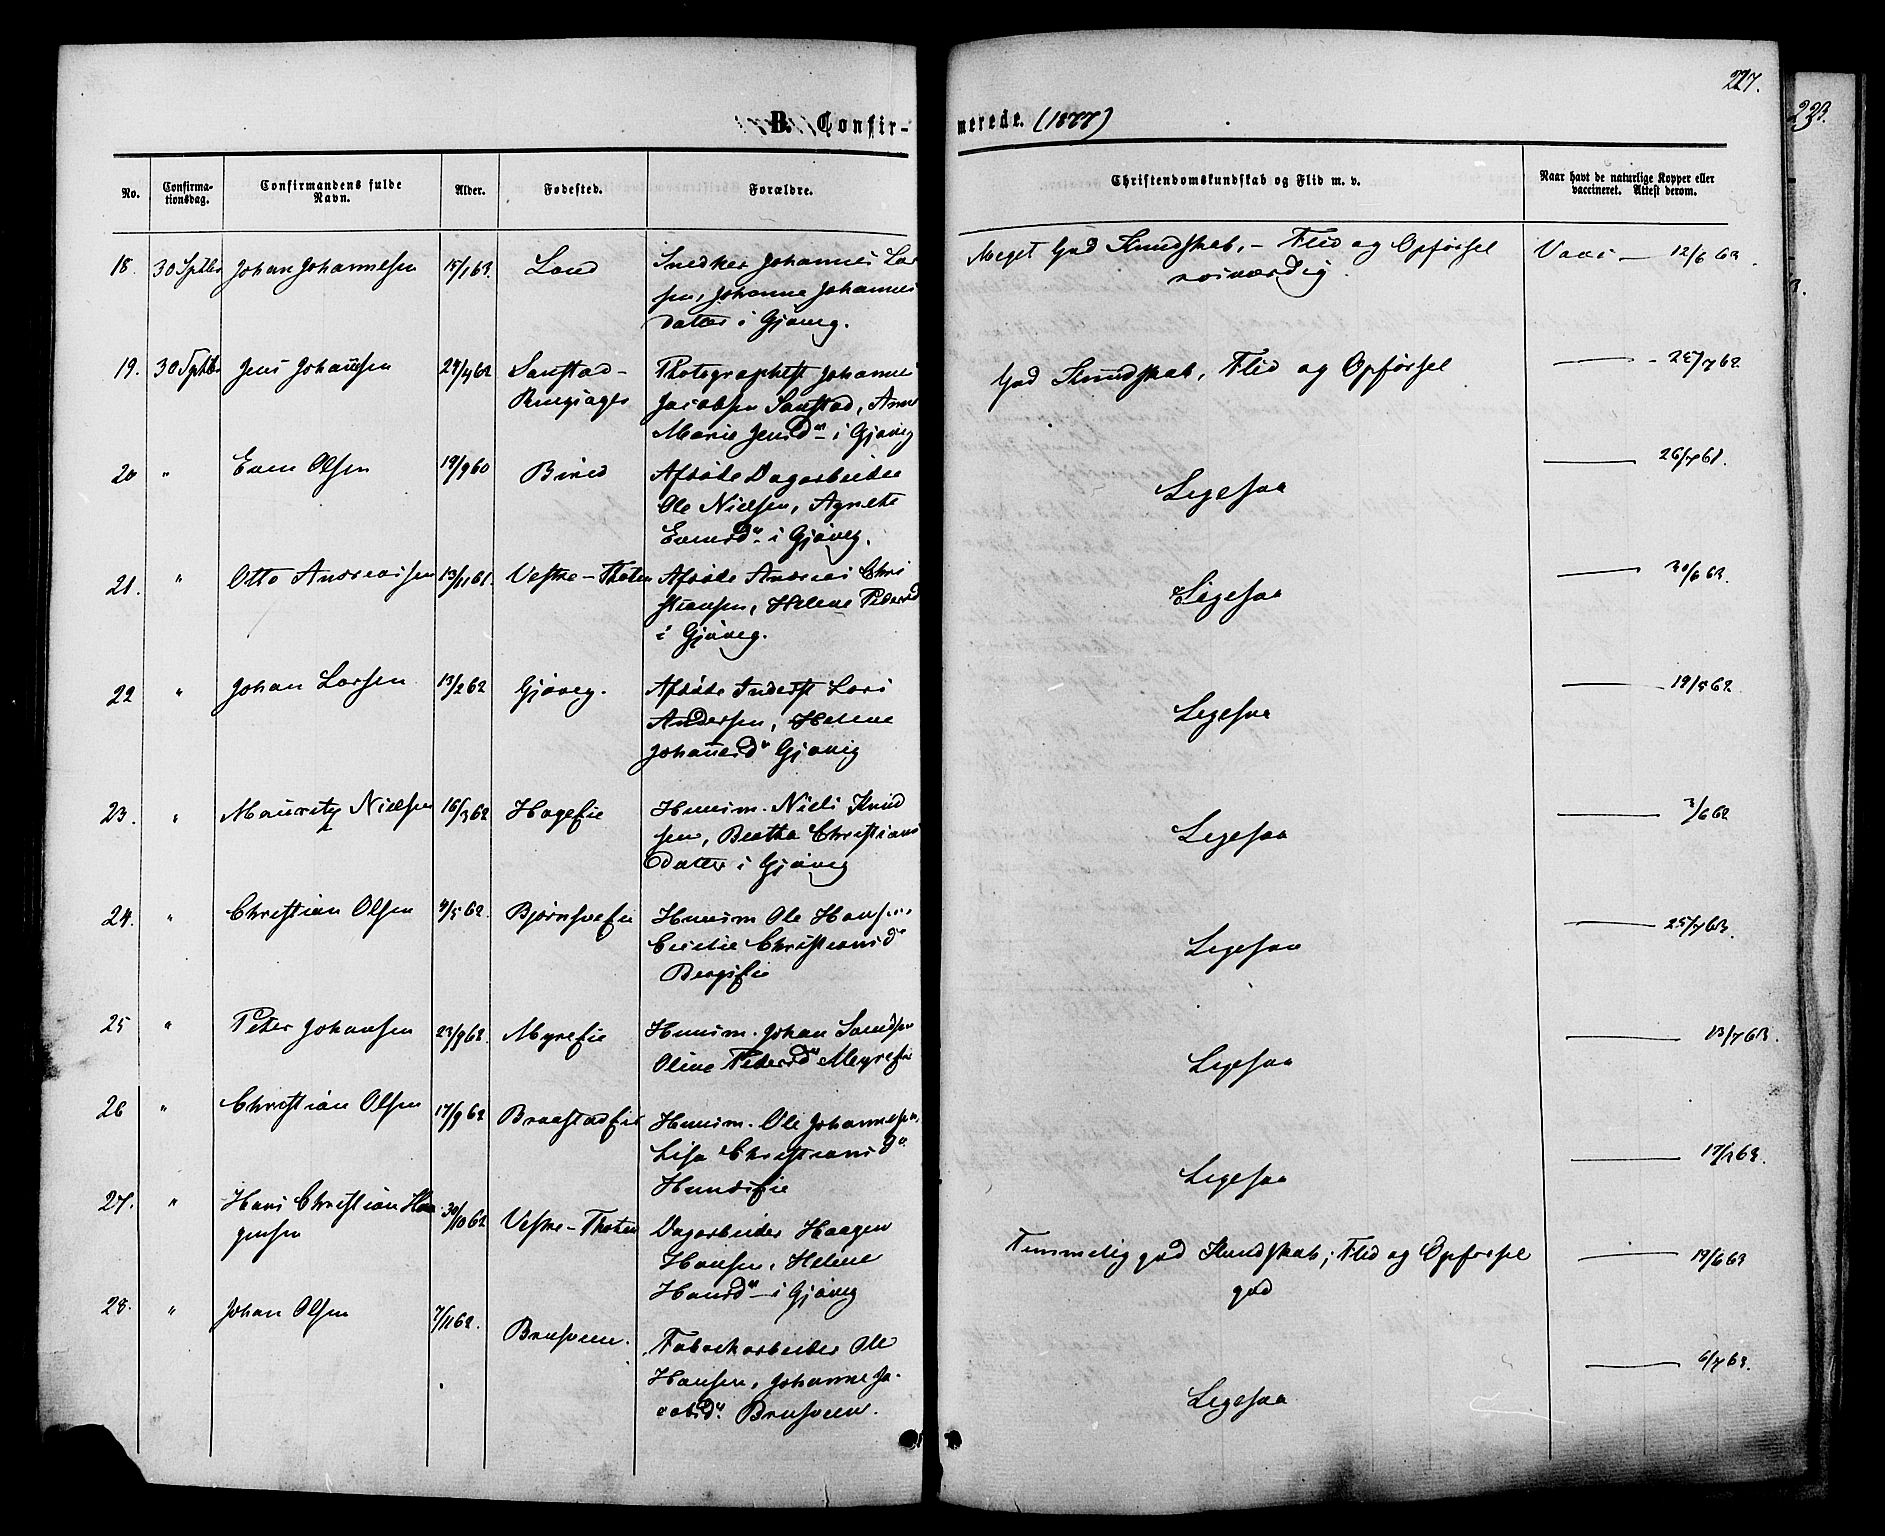 227.
223.
B. Confirmerede. (1877)
No. Confirmationsdag. Confirmandens fulde Navn. Alder. Fødested. Forældre. Christendomskundskab og Flid m. v. Naar havt de naturlige Kopper eller vaccineret. Attest derom.
18. 30 Septbr Johan Johannesen 15/1 63. Land Snedker Johannes Lar
sen, Johanne Johannes
datter i Gjøvig.
Meget God Kundskab, – Flid og Opførsel
rosværdig.
Vacc. — 12/6 63
19. 30 Septbr Jens Johansen 24/4 62 Sanstad-
Photographist Johannes
Jacobsen Sanstad, Anne
Marie Jensd" i Gjøvig
God Kundskab, Flid og Opførsel
— 25/7 62
20 " Even Olsen 19/9 60 Bired Afdøde Dagarbeider
Ole Nielsen, Agnete
Evensd" i Gjøvig.
Ligesaa
— 26/7 61.
21. " Otto Andreassen 13/11 61. Vestre-Thoten Afdøde Andreas Chri
stiansen, Helene Pedersd
i Gjøvig.
Ligesaa
— 30/6 63.
22 " Johan Larsen 13/2 62 Gjøvig. Afdøde Inderst Lars
Andersen, Helene
Johannesd" Gjøvig
Ligesaa
— 19/5 62
23. " Mauritz Nielsen 16/3 62 Hagefie Huusm. Niels Knud
sen, Beatha Christians
Datter i Gjøvig
Ligesaa
— 3/6 62
24. " Christian Olsen 4/5 62. Huusm Ole Hansen
Cecilie Christiansd"
Bergsfie
Ligesaa
— 25/7 63.
25 " Peter Johansen 23/9 62. Myrefie Huusm. Johan
Oline Pedersd" Myrefie
Ligesaa
— 13/7 63.
26 " Christian Olsen 17/9 62 Braastadfie Huusm. Ole Johannesen,
Lisa Christiansd"
Hundsfie
Ligesaa
— 63.
27. " Hans Christian Haa
gensen 30/10 62 Vestre-Thoten Dagarbeider Haagen
Hansen, Helene
Hansd" i Gjøvig
Temmelig god Kundskab, Flid og Opførsel
god
— 19/6 63
28. " Johan Olsen 7/11 62. Brusveen. Fabrikarbeider Ole
Hansen, Johanne Ja-
cobsd". Brusveen.
Ligesaa
— 6/7 63.